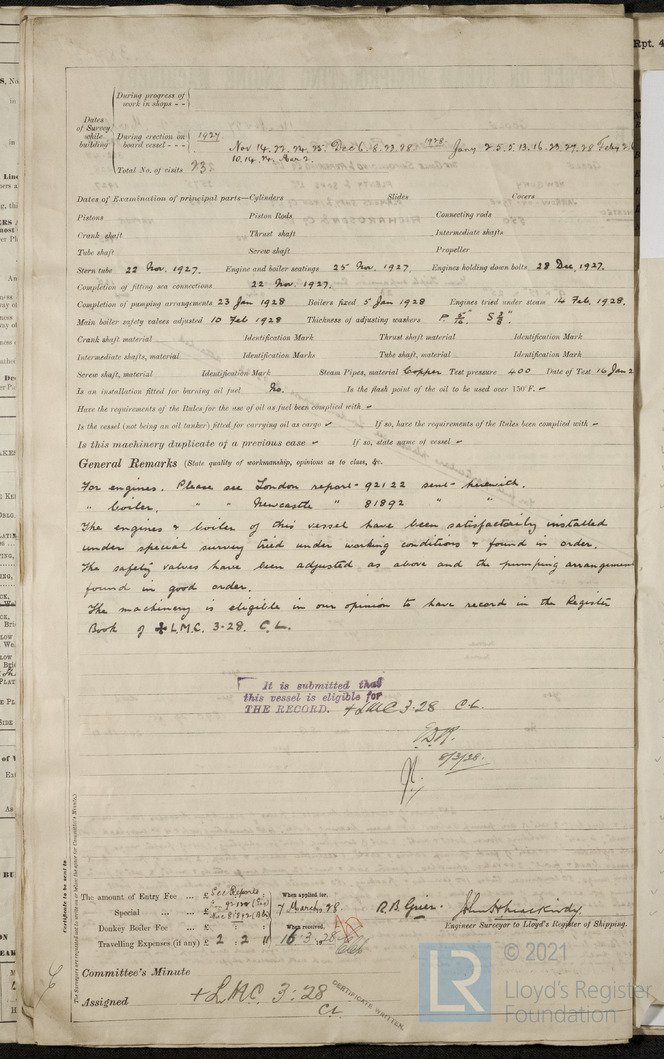 Rpt. 4
During progress of
work in shops - -
Dates
of Survey
while
building
During erection on
board vessel - - -
1927
Nov 14. 22. 24. 25. Dec 6. 8. 23. 28 1928. Jany 2. 5. 5. 13. 16. 23. 27. 28 Feby 2. 6
10. 14. 24. Mar 2.
Total No. of visits 23
Dates of Examination of principal parts—Cylinders Slides Covers
Pistons Piston Rods Connecting rods
Crank shaft Thrust shaft Intermediate shafts
Tube shaft Screw shaft Propeller
Stern tube 22 Nov. 1927. Engine and boiler seatings 25 Nov. 1927 Engines holding down bolts 28 Dec, 1927.
Completion of fitting sea connections 22 Nov. 1927.
Completion of pumping arrangements 23 Jan 1928 Boilers fixed 5 Jan 1928 Engines tried under steam 14 Feb, 1928.
Main boiler safety valves adjusted 10 Feb 1928 Thickness of adjusting washers P. 5/16" S 3/8".
Crank shaft material Identification Mark Thrust shaft material Identification Mark
Intermediate shafts, material Identification Marks Tube shaft, material Identification Mark
Screw shaft, material Identification Mark Steam Pipes, material Copper Test pressure 400 Date of Test 16 Jan 2
Is an installation fitted for burning oil fuel No. Is the flash point of the oil to be used over 150°F.
Have the requirements of the Rules for the use of oil as fuel been complied with
Is the vessel (not being an oil tanker) fitted for carrying oil as cargo If so, have the requirements of the Rules been complied with
Is this machinery duplicate of a previous case If so, state name of vessel
General Remarks (State quality of workmanship, opinions as to class, &c.
For engines. Please see London report 92122 sent herewith.
" boiler. " " Newcastle " 81892 " "
The engines & boiler of this vessel have been satisfactorily installed
under special survey tried under working conditions & found in order.
The safety valves have been adjusted as above and the pumping arrangement
found in good order.
The machinery is eligible in our opinion to have record in the Register
Book of ✠ L.M.C. 3-28. C.L.
It is submitted that
this vessel is eligible for
THE RECORD. + LMC 3.28 C.L.
8/3/28.
Certificate to be sent to
The Surveyors are requested not to write on or below the space for Committee's Minute.
The amount of Entry Fee ... £ See Reports
Special ... £
Donkey Boiler Fee ... £ : :
Travelling Expenses (if any) £ 2 : 2 : "
When applied for,
7 March 1928
When received,
16. 3. 1928
R.B. Grier.
Engineer Surveyor to Lloyd's Register of Shipping.
Committee's Minute
Assigned + L.M.C. 3:28
CL
CERTIFICATE WRITTEN.
LR
© 2021
Lloyd's Register
Foundation